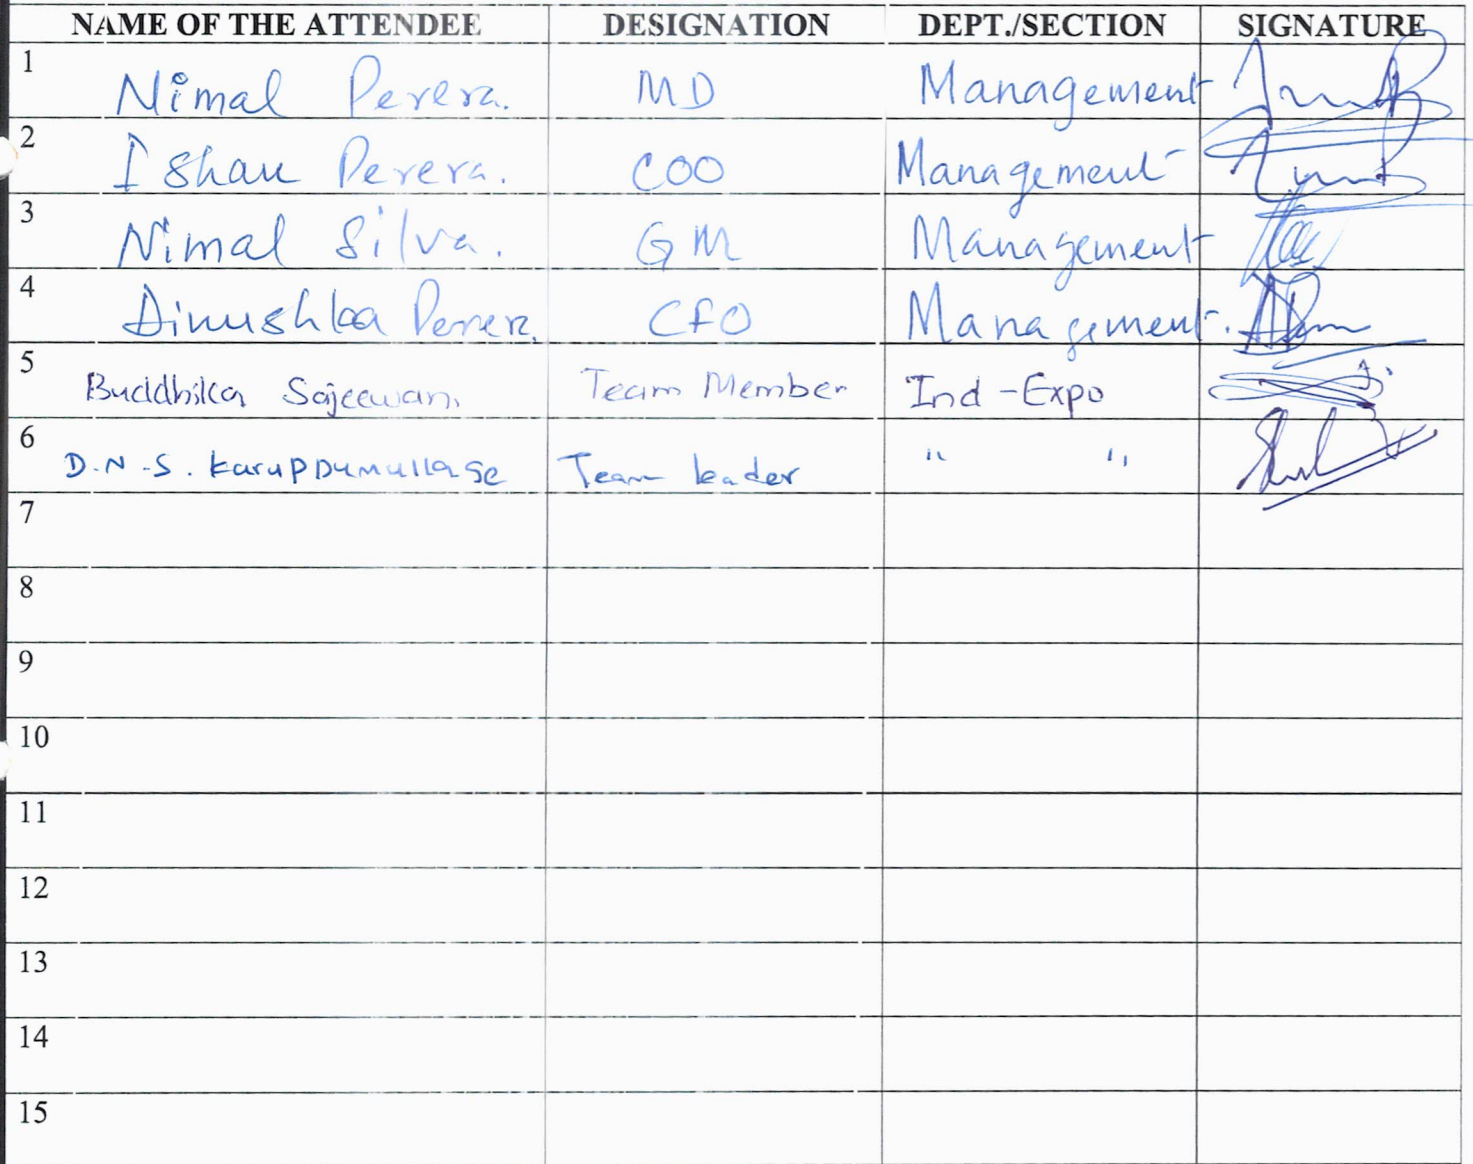 NAME OF THE ATTENDEE DESIGNATION DEPT./SECTION SIGNATURE
1 Nimal Perera. MD Management
2 Ishan Perera. COO Management
3 Nimal Silva. GM Management
4 Dinushka Perera. CFO Management.
5 Buddhika Sajeewani Team Member Ind-Expo
6 D.N.S. Karuppumullage Team leader " "
7
8
9
10
11
12
13
14
15